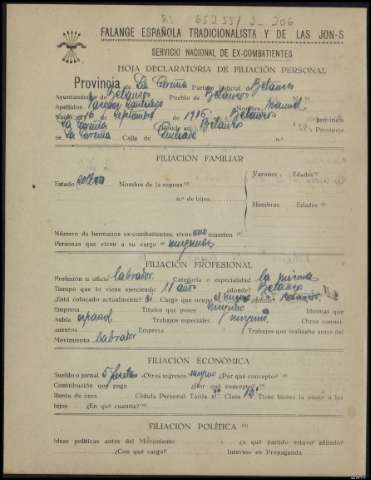 65255/3-206
FALANGE ESPAÑOLA TRADICIONALISTA Y DE LAS JON-S
SERVICIO NACIONAL DE EX-COMBATIENTES
HOJA DECLARATORIA DE FILIACIÓN PERSONAL
Provincia de La Coruña Partido judicial de Betanzos
Ayuntamiento de Betanzos Pueblo de Betanzos
Apellidos Santiago Nombre Manuel
Nació el de Septiembre de 1916 Betanzos Provincia
La Coruña Betanzos Provincia
La Coruña Calle de
FILIACIÓN FAMILIAR
Estado soltero Nombre de la esposa Varones Edades
n.º de hijos
Hembras Edades
Número de hermanos ex-combatientes, vivos uno muertos
Personas que viven a su cargo ninguna
FILIACIÓN PROFESIONAL
Profesión u oficio labrador Categoría o especialidad la misma
Tiempo que lo viene ejerciendo 11 años ¿dónde? Betanzos
¿Está colocado actualmente? Si Cargo que ocupa el mismo
Empresa Títulos que posee ninguno Idiomas que
habla español Trabajos especiales ninguno Otros conoci-
mientos Empresa Trabajos que realizaba antes del
Movimiento labrador
FILIACIÓN ECONÓMICA
Sueldo o jornal 5 pesetas Otros ingresos ninguno ¿Por qué concepto?
Contribución que paga ¿Por qué concepto?
Renta de casa Cédula Personal Tarifa Clase 13ª Tiene bienes la mujer o los
hijos ¿En qué cuantía?
FILIACIÓN POLÍTICA
Ideas políticas antes del Movimiento ¿a qué partido estuvo afiliado?
¿Con qué cargo? Intervino en Propaganda